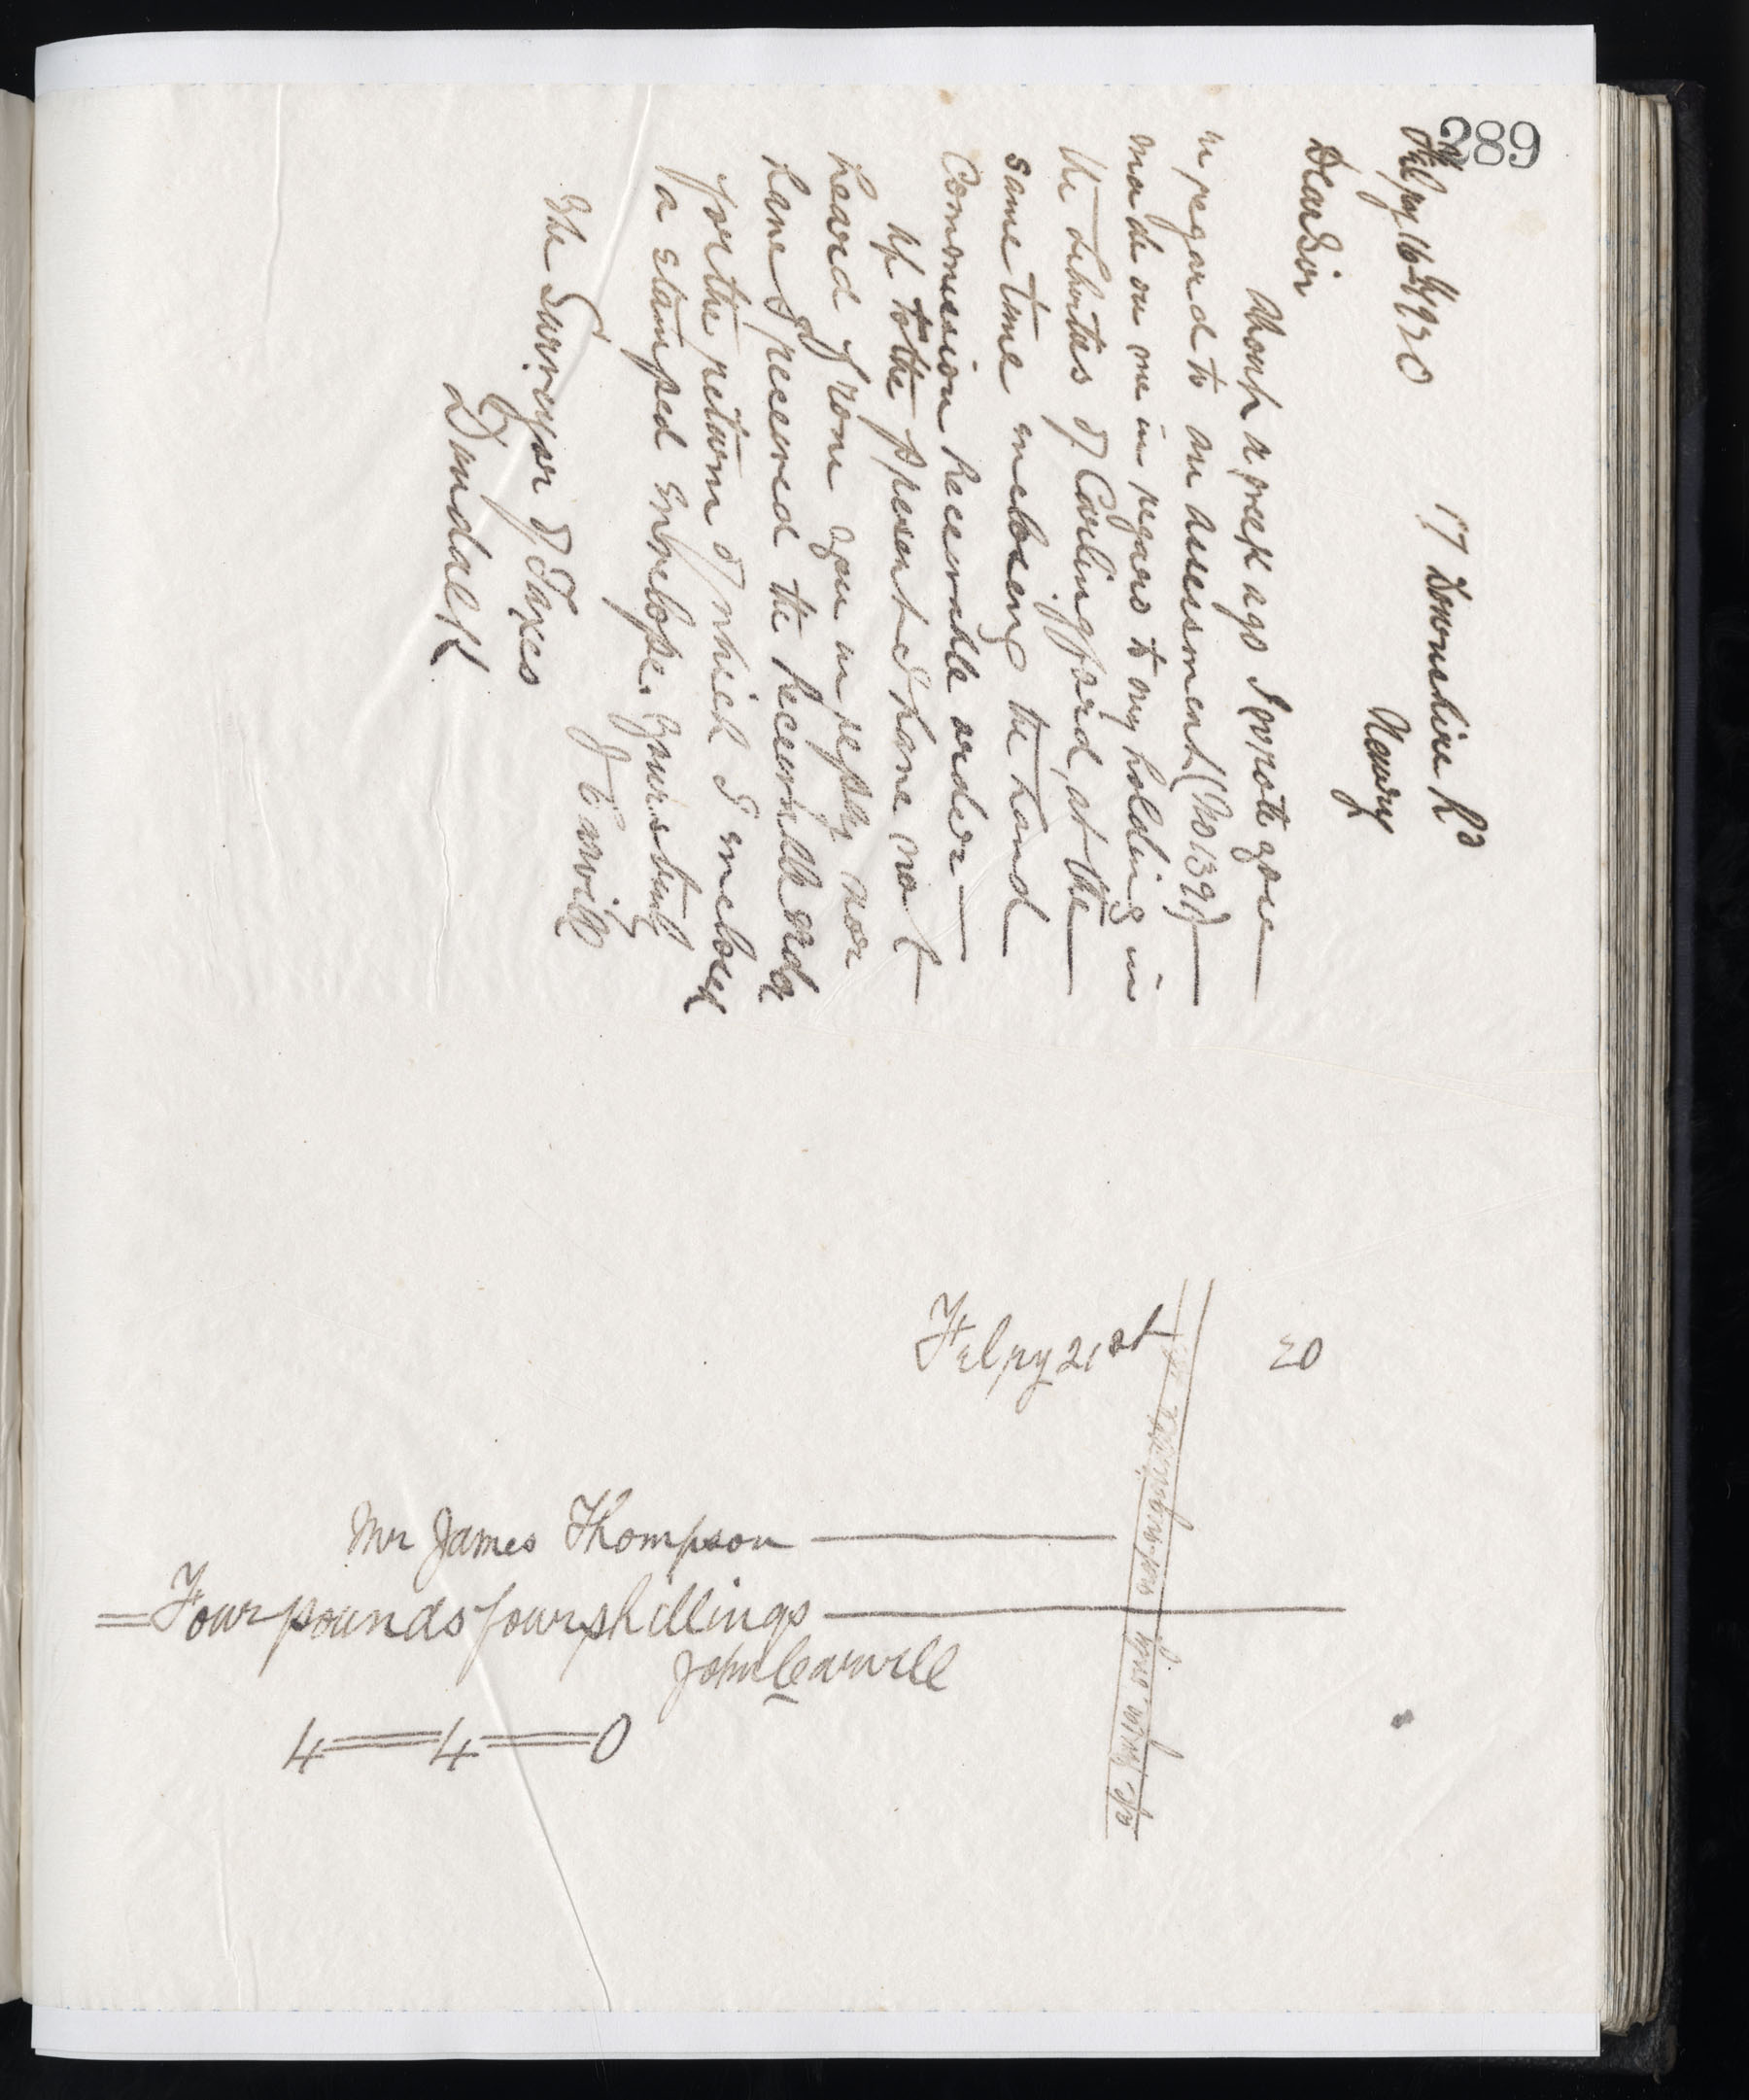 289
17 Downshire Rd
Newry
Febry 16th 1920
Dear Sir
About a week ago I wrote you
in regard to an assessment (No 1391)
made on me in regard to my holding in
the of Carlingford, at the
same time inclosing the Land
Commission Receivable order
Up to the present I have not
heard from you in reply nor
have I received the Receivable order
for the return of which I inclosed
a stamped envelope. Yours truly
J Carvill
The Surveyor of Taxes
Dundalk
Febry 21st 20
Mr James Thompson
Four pounds four shillings
John Carvill
4 = 4 = 0